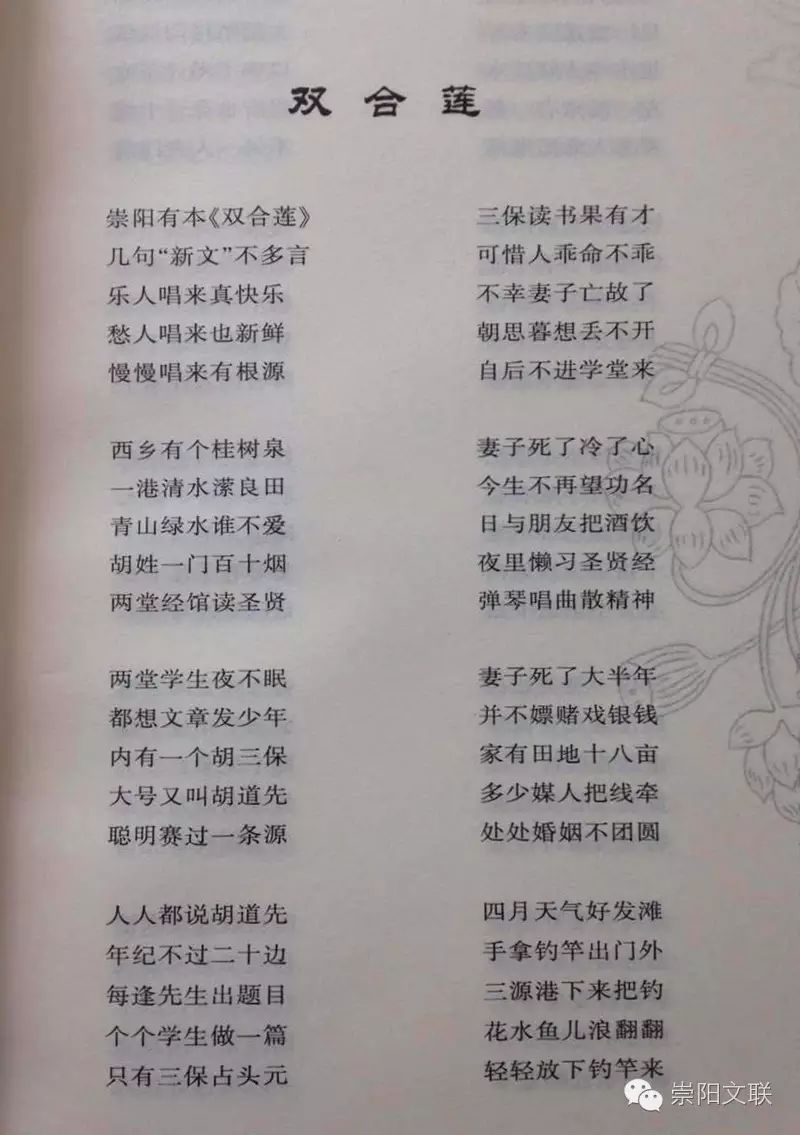 双合莲
崇阳有本《双合莲》
几句“新文”不多言
乐人唱来真快乐
愁人唱来也新鲜
慢慢唱来有根源
西乡有个桂树泉
一港清水潆良田
青山绿水谁不爱
胡姓一门百十烟
两堂经馆读圣贤
两堂学生夜不眠
都想文章发少年
内有一个胡三保
大号又叫胡道先
聪明赛过一条源
人人都说胡道先
年纪不过二十边
每逢先生出题目
个个学生做一篇
只有三保占头元
三保读书果有才
可惜人乖命不乖
不幸妻子亡故了
朝思暮想丢不开
自后不进学堂来
妻子死了冷了心
今生不再望功名
日与朋友把酒饮
夜里懒习圣贤经
弹琴唱曲散精神
妻子死了大半年
并不嫖赌戏银钱
家有田地十八亩
多少媒人把线牵
处处婚姻不团圆
四月天气好发滩
手拿钓竿出门外
三源港下来把钓
花水鱼儿浪翻翻
轻轻放下钓竿来
崇阳文联